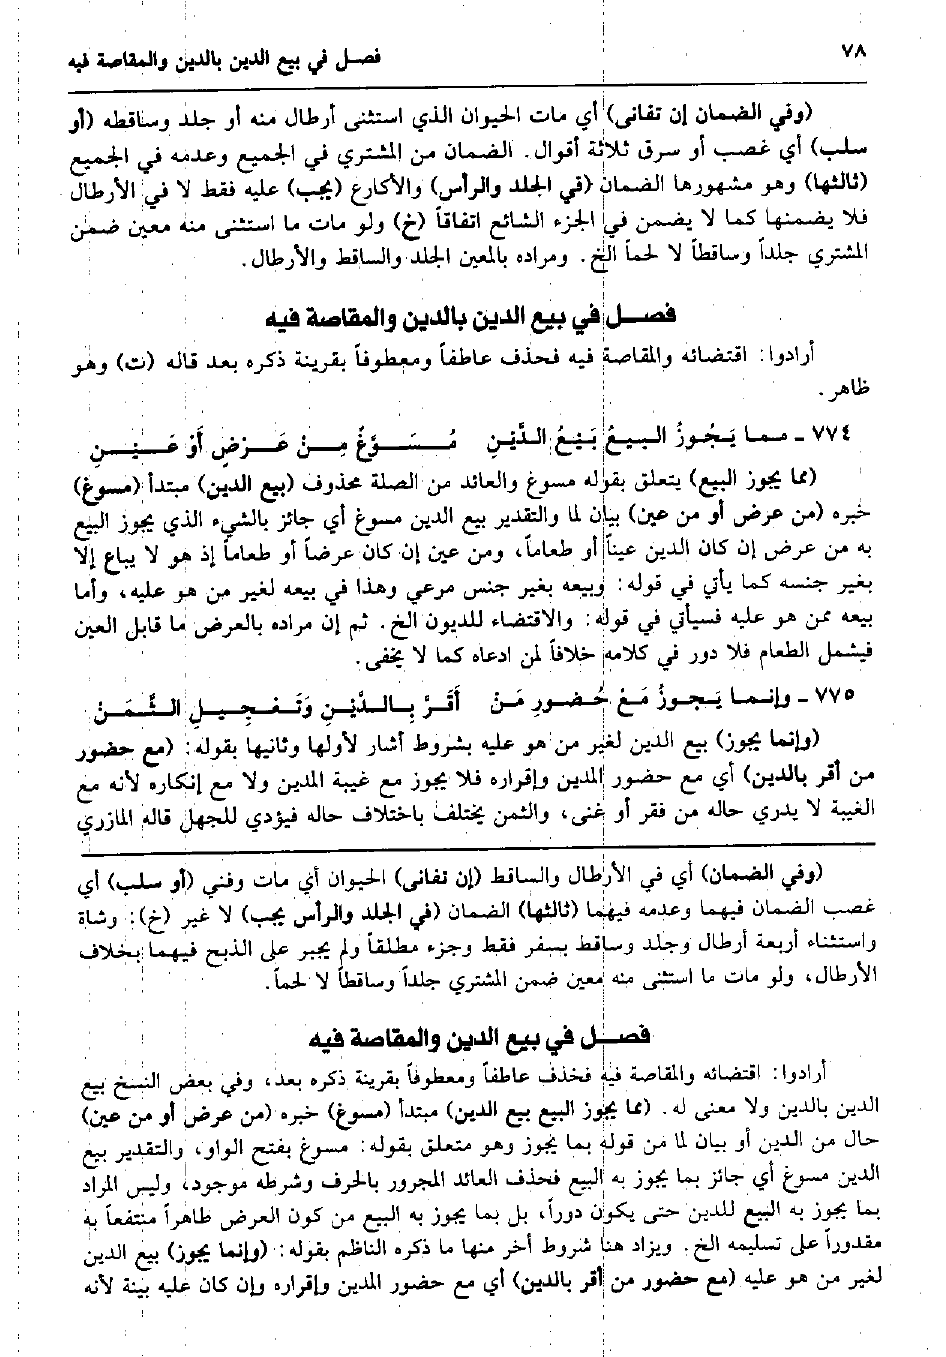 ٧٨
فصل في بيع الدين بالدين والمقاصة فيه
(وفي الضمان إن تفانى) أي مات الحيوان الذي استثنى أرطال منه أو جلد وساقطه (أو
سلب) أي غصب أو سرق ثلاثة أقوال. الضمان من المشتري في الجميع وعدمه في الجميع
(ثالثها) وهو مشهورها الضمان (في الجلد والرأس) والأكارع (يجب) عليه فقط لا في الأرطال
فلا يضمنها كما لا يضمن في الجزء الشائع اتفاقاً (خ) ولو مات ما استثنى منه معين ضمن
المشتري جلداً وساقطاً لا لحماً الخ. ومراده بالمعين الجلد والساقط والأرطال.
فصل في بيع الدين بالدين والمقاصة فيه
أرادوا: اقتضائه والمقاصة فيه فحذف عاطفاً ومعطوفاً بقرينة ذكره بعد قاله (ت) وهو
ظاهر.
٧٧٤ ـ مما يَجُوزُ البيعُ بَيْعُ الدَّيْنِ مُسَوَّغٌ مِنْ عَرَضٍ أَوْ عَيْنِ
(مما يجوز البيع) يتعلق بقوله مسوغ والعائد من الصلة محذوف (بيع الدين) مبتدأ (مسوغ)
خبره (من عرض أو من عين) بيان لما والتقدير بيع الدين مسوغ أي جائز بالشيء الذي يجوز البيع
به من عرض إن كان الدين عيناً أو طعاماً، ومن عين إن كان عرضاً أو طعاماً إذ هو لا يباع إلا
بغير جنسه كما يأتي في قوله: وبيعه بغير جنس مرعي وهذا في بيعه لغير من هو عليه، وأما
بيعه ممن هو عليه فسيأتي في قوله: والاقتضاء للديون الخ. ثم إن مراده بالعرض ما قابل العين
فيشمل الطعام فلا دور في كلامه خلافاً لمن ادعاه كما لا يخفى.
٧٧٥ ـ وإنما يَجوزُ مَعْ حُضورِ مَنْ أَقَرَّ بِالدَّيْنِ وَتَعْجِيلِ الثَّمَنْ
(وإنما يجوز) بيع الدين لغير من هو عليه بشروط أشار لأولها وثانيها بقوله: (مع حضور
من أقر بالدين) أي مع حضور المدين وإقراره فلا يجوز مع غيبة المدين ولا مع إنكاره لأنه مع
الغيبة لا يدري حاله من فقر أو غنى، والثمن يختلف باختلاف حاله فيؤدي للجهل قاله المازري
(وفي الضمان) أي في الأرطال والساقط (إن تفانى) الحيوان أي مات وفني (أو سلب) أي
غصب الضمان فيهما وعدمه فيهما (ثالثها) الضمان (في الجلد والرأس يجب) لا غير (خ): وشاة
واستثناء أربعة أرطال وجلد وساقط بسفر فقط وجزء مطلقاً ولم يجبر على الذبح فيهما بخلاف
الأرطال، ولو مات ما استثنى منه معين ضمن المشتري جلداً وساقطاً لا لحماً.
فصل في بيع الدين والمقاصة فيه
أرادوا: اقتضائه والمقاصة فيه فحذف عاطفاً ومعطوفاً بقرينة ذكره بعد، وفي بعض النسخ بيع
الدين بالدين ولا معنى له. (مما يجوز البيع بيع الدين) مبتدأ (مسوغ) خبره (من عرض أو من عين)
حال من الدين أو بيان لما من قوله بما يجوز وهو متعلق بقوله: مسوغ بفتح الواو، والتقدير بيع
الدين مسوغ أي جائز بما يجوز به البيع فحذف العائد المجرور بالحرف وشرطه موجود، وليس المراد
بما يجوز به البيع للدين حتى يكون دوراً، بل بما يجوز به البيع من كون العرض طاهراً منتفعاً به
مقدوراً على تسليمه الخ. ويزاد هنا شروط أخر منها ما ذكره الناظم بقوله: (وإنما يجوز) بيع الدين
لغير من هو عليه (مع حضور من أقر بالدين) أي مع حضور المدين وإقراره وإن كان عليه بينة لأنه